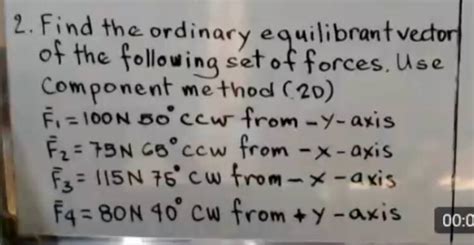 2. Find the ordinary equilibrant vector
of the following set of forces. Use
Component method (2D)
F̄₁ = 100N 50° ccw from -y-axis
F̄₂ = 75N 65° ccw from -x-axis
F̄₃ = 115N 75° cw from -x-axis
F̄4 = 80N 40° cw from +y-axis
00:0